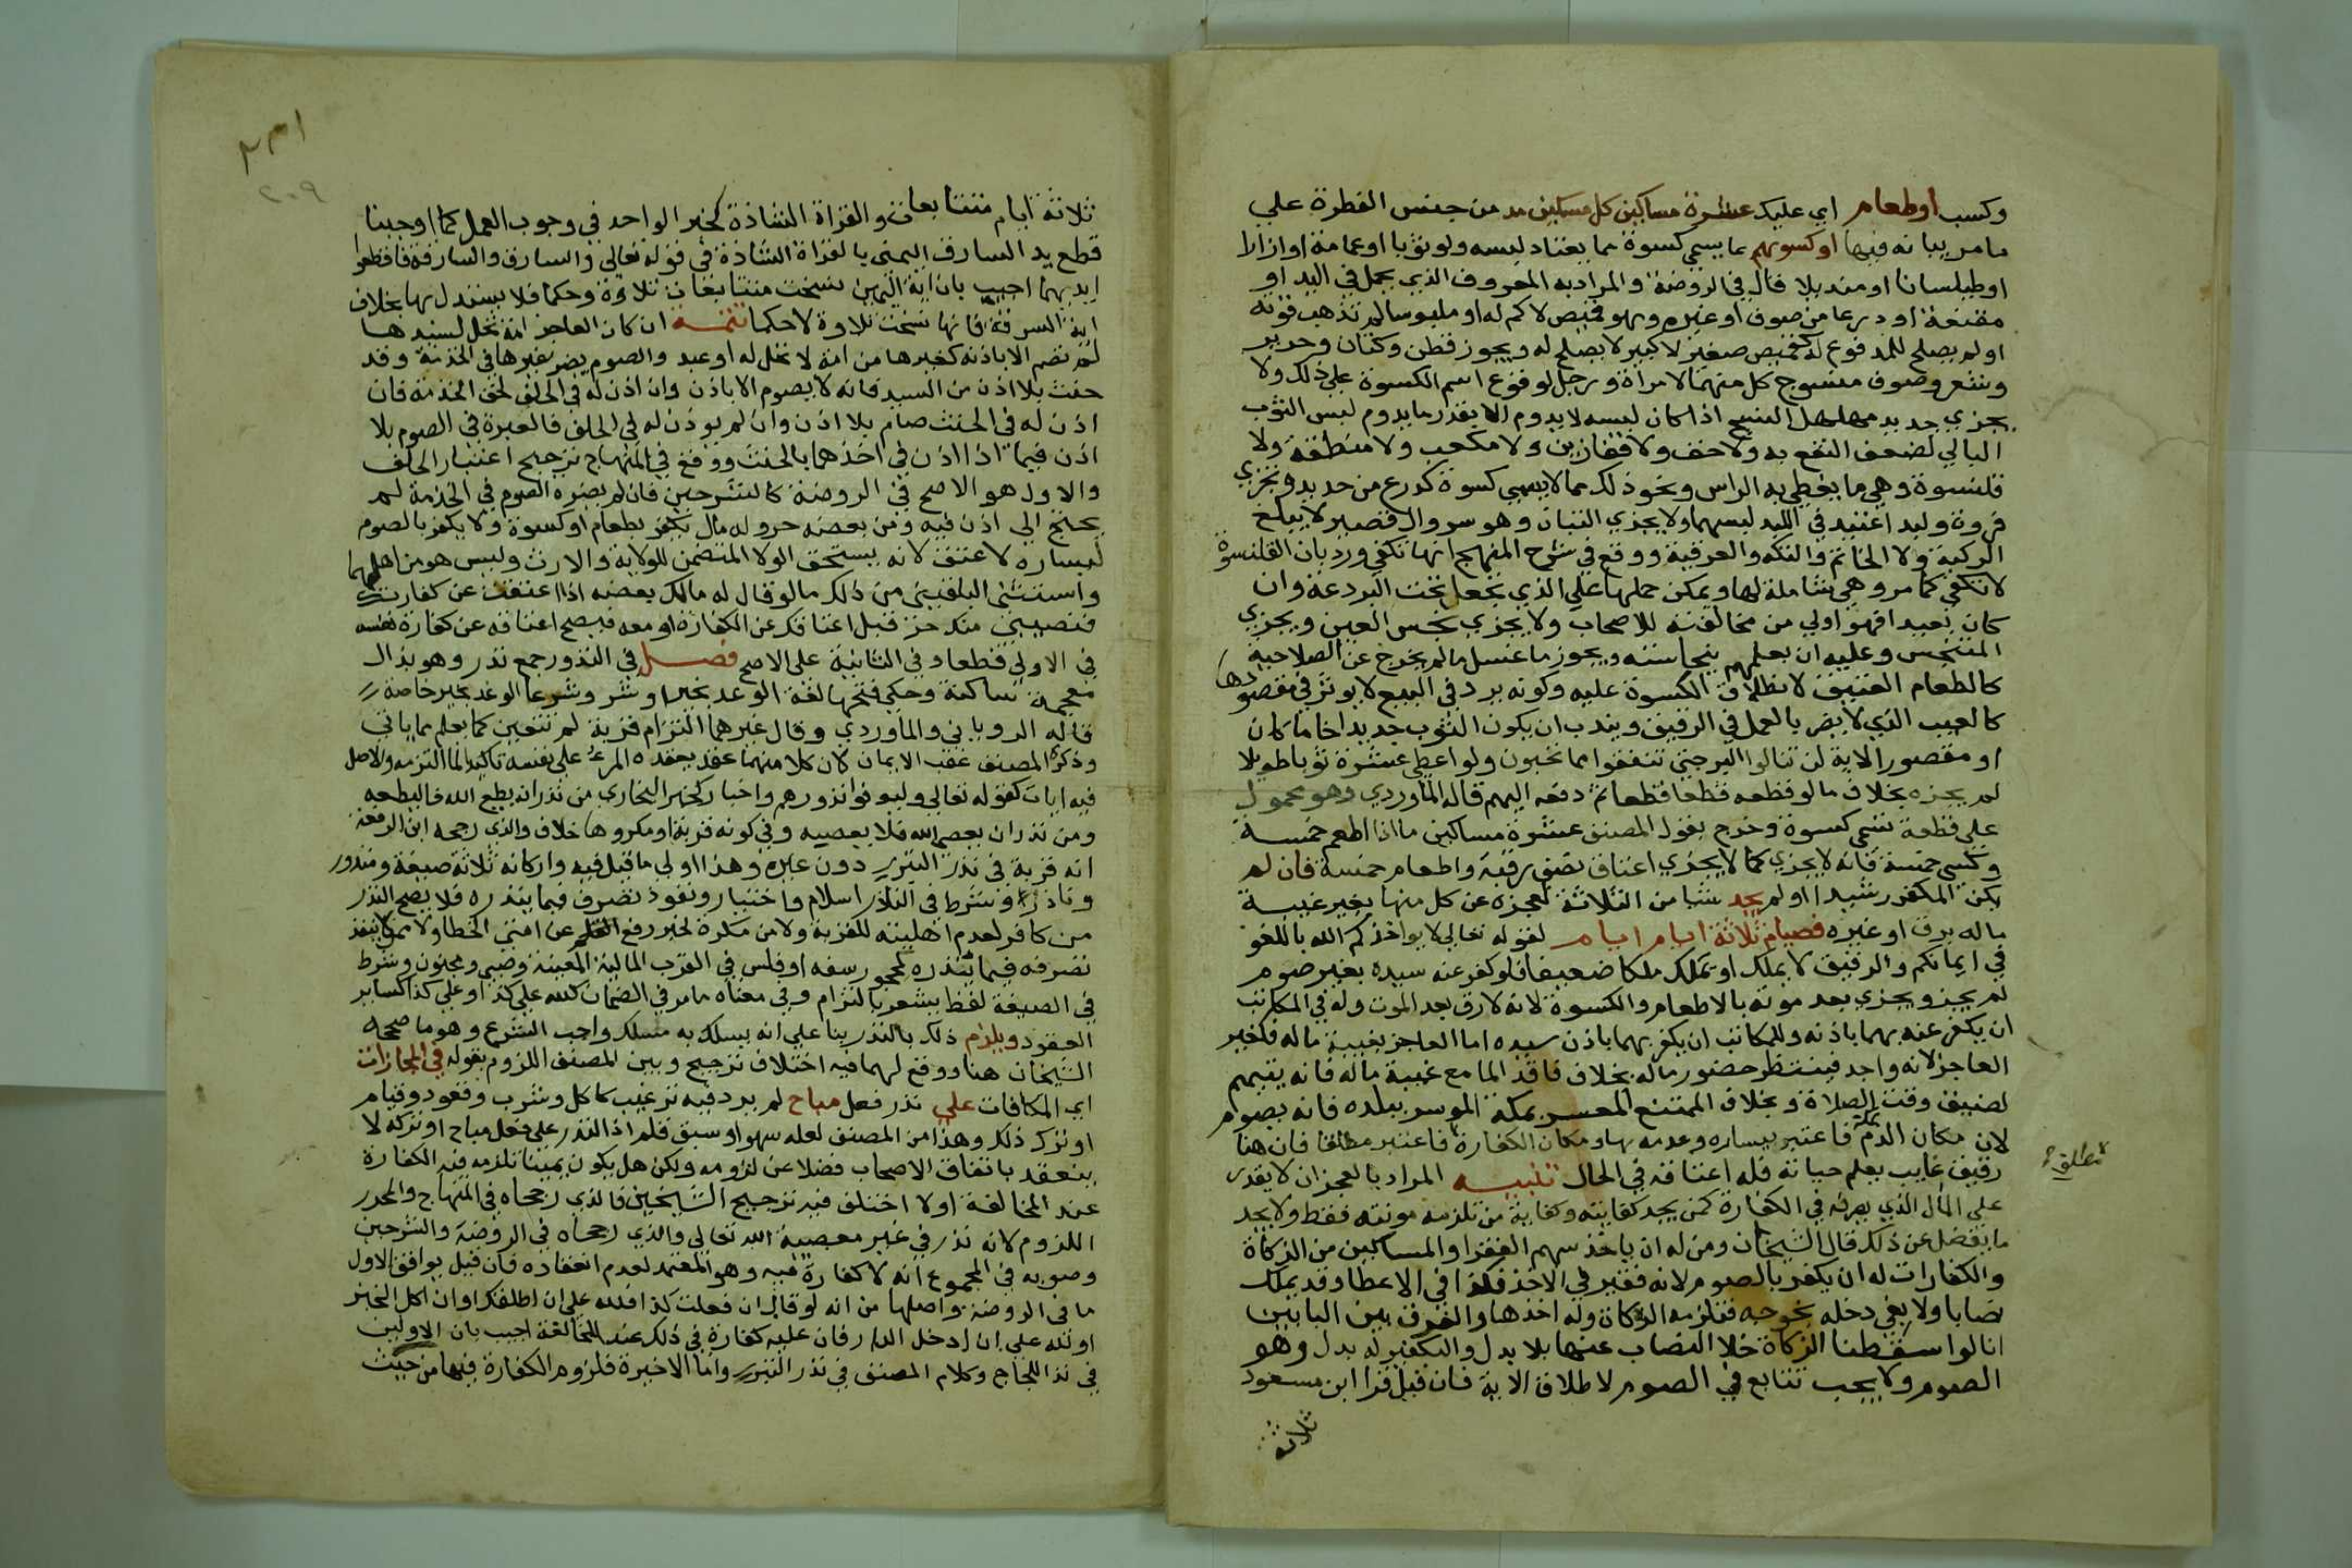 وكسب او طعام اي عليك عشرة مساكين كل مسكين مد من جنس الفطرة علي
ما مر بيانه فيها او كسوتهم بما يسمي كسوة مما يعتاد لبسه ولو ثوبا او عمامة او ازارا
او طيلسانا او منديلا قال في الروضة والمراد به المعروف الذي يحمل في اليد او
مقنعة او درعا من صوف او غيره وهو قميص لا كم له او ملبوسا لم تذهب قوته
او لم يصلح للمدفوع له كقميص صغير لا كبير لا يصلح له ويجوز قطن وكتان وحرير
وشعر وصوف منسوج كل منهما لامراة ورجل لوقوع اسم الكسوة علي ذلك ولا
يجزي جديد مهلهل النسج اذا كان لبسه لا يدوم الا بقدر ما يدوم لبس الثوب
البالي لضعف النفع به ولا خف ولا قفازين ولا مكعب ولا منطقة ولا
قلنسوة وهي ما يغطي به الراس ونحو ذلك مما لا يسمي كسوة كدرع من حديد وتجزي
فروة ولبد اعتيد في البلد لبسهما ولا يجزي التبان وهو سروال قصير لا يبلغ
الركبة ولا الخاتم والتكه والعرقية ووقع في شرح المنهج انها تكفي ورد بان القلنسوة
لا تكفي كما مر وهي شاملة لها ويمكن حملها علي الذي يجعل تحت البردعة وان
كان بعيدا فهو اولي من مخالفته للاصحاب ولا يجزي نجس العين ويجزي
المتنجس وعليه ان يعلمهم بنجاسته ويجوز ما غسل ما لم يخرج عن الصلاحية
كالطعام العتيق لانطلاق الكسوة عليه وكونه يرد في البيع لا يوثر في مقصودها
كالعيب الذي لا يضر بالعمل في الرقيق ويندب ان يكون الثوب جديدا خاما كان
او مقصورا لاية لن تنالوا البر حتي تنفقوا مما تحبون ولو اعطي عشرة ثوبا طويلا
لم يجزه بخلاف ما لو قطعه قطعا قطعا ثم دفعه اليهم قاله الماوردي وهو محمول
علي قطعة تسمي كسوة وخرج بقول المصنف عشرة مساكين ما اذا اطعم خمسة
وكسي خمسة فانه لا يجزي كما لا يجزي اعتاق نصف رقبة واطعام خمسة فان لم
يكن المكفر رشيدا او لم يجد شيا من الثلاثة لعجزه عن كل منها بغير غيبة
ماله برق او غيره فصيام ثلاثة ايام ايام لقوله تعالي لا يواخذكم الله باللغو
في ايمانكم والرقيق لا يملك او يملك ملكا ضعيفا فلو كفر عنه سيده بغير صوم
لم يجز ويجزي بعد موته بالاطعام والكسوة لانه لا رق بعد الموت وله في المكاتب
ان يكفر عنه بهما باذنه وللمكاتب ان يكفر بهما باذن سيده اما العاجز بغيبة ماله فكغير
العاجز لانه واجد فينتظر حضور ماله بخلاف فاقد الما مع غيبة ماله فانه يتيمم
لضيق وقت الصلاة وبخلاف الممتنع المعسر بمكة الموسر ببلده فانه يصوم
لان مكان الدم بمكة فاعتبر يساره وعدمه بها ومكان الكفارة فاعتبر مطلقا فان هنا
رقيق غايب يعلم حياته فله اعتاقه في الحال تنبيه المراد بالعجز ان لا يقدر
علي المال الذي يصرفه في الكفارة كمن يجد كفايته وكفاية من تلزمه مونته فقط ولا يجد
ما يفضل عن ذلك قال الشيخان ومن له ان ياخذ سهم الفقرا والمساكين من الزكاة
والكفارات له ان يكفر بالصوم لانه فقير في الاخذ فكذا في الاعطا وقد يملك
نصابا ولا يفي دخله بخرجه فتلزمه الزكاة وله اخذها والفرق بين البابين
انا لو اسقطنا الزكاة خلا النصاب عنها بلا بدل والتكفير له بدل وهو
الصوم ولا يجب تتابع في الصوم لاطلاق الاية فان قيل قرا ابن مسعود
ثلاثة
٢٠٩
ثلاثة ايام متتابعات والقراة الشاذة كخبر الواحد في وجوب العمل كما اوجبنا
قطع يد السارق اليمني بالقراة الشاذة في قوله تعالي والسارق والسارقة فاقطعوا
ايديهما اجيب بان اية اليمين نسخت متتابعات تلاوة وحكما فلا يستدل بها بخلاف
اية السرقة فانها نسخت تلاوة لا حكما تتمة ان كان العاجز امة تحل لسيدها
لم تصم الا باذنه كغيرها من امة لا تحل له او عبد والصوم يضر بغيرها في الخدمة وقد
حنث بلا اذن من السيد فانه لا يصوم الا باذن وان اذن له في الحلف لحق الخدمة فان
اذن له في الحنث صام بلا اذن وان لم يوذن له في الحلف فالعبرة في الصوم بلا
اذن فيما اذا اذن في احدهما بالحنث ووقع في المنهاج ترجيح اعتبار الحلف
والاول هو الاصح في الروضة كالشرحين فان لم يضره الصوم في الخدمة لم
يحتج الي اذن فيه ومن بعضه حر وله مال يكفر بطعام او كسوة ولا يكفر بالصوم
ليساره لا عتق لانه يستحق الولا المتضمن للولاية والارث وليس هو من اهلهما
واستثني البلقيني من ذلك ما لو قال له مالك بعضه اذا اعتقت عن كفارتك
فنصيبي منك حر قبل اعتاقك عن الكفارة او معه فيصح اعتاقه عن كفارة نفسه
في الاولي قطعا وفي الثانية علي الاصح فصل في النذور جمع نذر وهو بذال
معجمة ساكنة وحكي فتحها لغة الوعد بخير او شر وشرعا الوعد بخير خاصة
قاله الروياني والماوردي وقال غيرهما التزام قربة لم تتعين كما يعلم مما ياتي
وذكره المصنف عقب الايمان لان كلا منهما عقد يعقده المرء علي نفسه تاكيدا لما التزمه والاصل
فيه ايات كقوله تعالي وليوفوا نذورهم واخبار كخبر البخاري من نذر ان يطيع الله فاليطعه
ومن نذر ان يعصي الله فلا يعصيه وفي كونه قربة او مكروها خلاف والذي رجحه ابن الرفعة
انه قربة في نذر التبرر دون غيره وهذا اولي ما قيل فيه واركانه ثلاثة صيغة ومنذور
وناذر وشرط في الناذر اسلام واختيار ونفوذ تصرف فيما ينذره فلا يصح النذر
من كافر لعدم اهليته للقربة ولا من مكره لخبر رفع القلم عن امتي الخطا ولا ممن لا ينفذ
تصرفه فيما ينذره كمحجور سفه او فلس في القرب المالية المعينة وصبي ومجنون وشرط
في الصيغة لفظ يشعر بالتزام وفي معناه ما مر في الضمان كلله علي كذا او علي كذا كساير
العقود ويلزم ذلك بالنذر بنا علي انه يسلك به مسلك واجب الشرع وهو ما صححه
الشيخان هنا ووقع لهما فيه اختلاف ترجيح وبين المصنف اللزوم بقوله في المجازات
اي المكافات علي نذر فعل مباح لم يرد فيه ترغيب كاكل وشرب وقعود وقيام
او ترك ذلك وهذا من المصنف لعله سهو او سبق قلم اذ النذر علي فعل مباح او تركه لا
ينعقد باتفاق الاصحاب فضلا عن لزومه ولكن هل يكون يمينا تلزمه فيه الكفارة
عند المخالفة او لا اختلف فيه ترجيح الشيخين فالذي رجحاه في المنهاج والمحرر
اللزوم لانه نذر في غير معصية الله تعالي والذي رجحاه في الروضة والشرحين
وصوبه في المجموع انه لا كفارة فيه وهو المعتمد لعدم انعقاده فان قيل يوافق الاول
ما في الروضة واصلها من انه لو قال ان فعلت كذا فلله علي ان اطلقك او ان اكل الخبز
او لله علي ان ادخل الدار فان عليه كفارة في ذلك عند المخالفة اجيب بان الاولين
في نذر اللجاج وكلام المصنف في نذر التبرر واما الاخيرة فلزوم الكفارة فيها من حيث